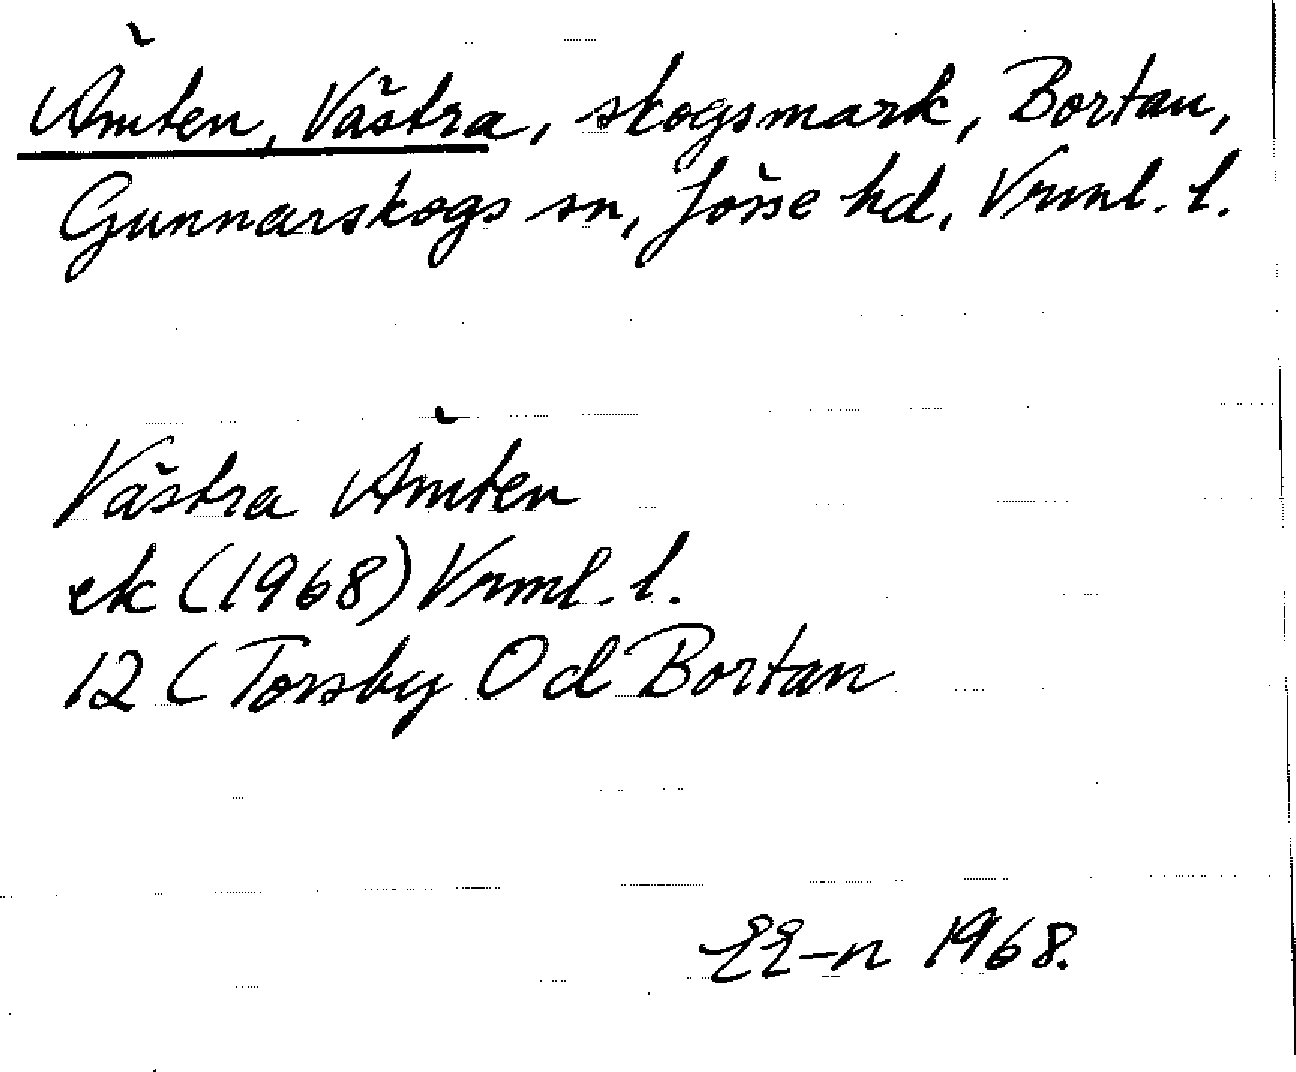 Ämten, Västra, skogsmark, Bortan,
Gunnarskogs sn, Jösse hd, Vrml. l.
Västra Ämten
ek (1968) Vrml. l.
12 C Torsby Od Bortan
EE-n 1968.